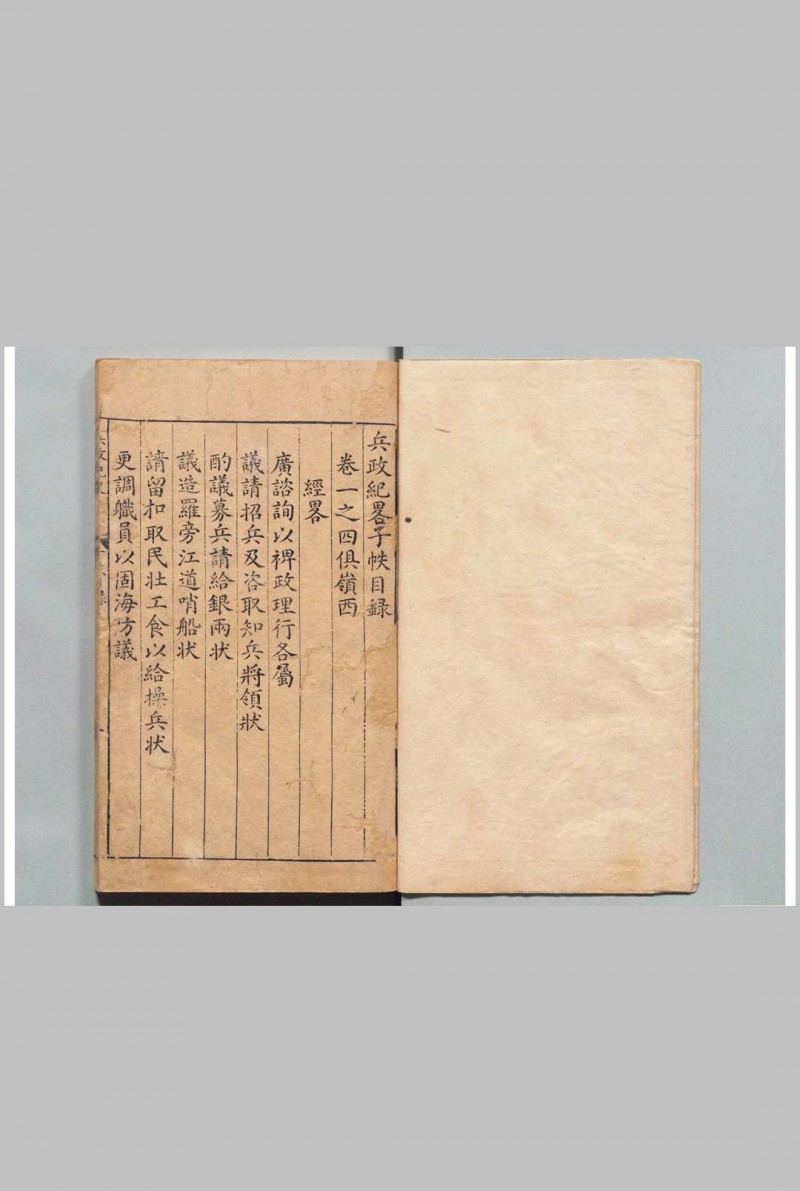 兵政紀畧子帙目録
卷一之四俱嶺西
經畧
廣諮詢以裨政理行各屬
議請招兵及咨取知兵將領狀
酌議募兵請給銀兩状
議造羅旁江道哨船状
請留扣取民壮工食以給操兵状
更調職員以固海方議